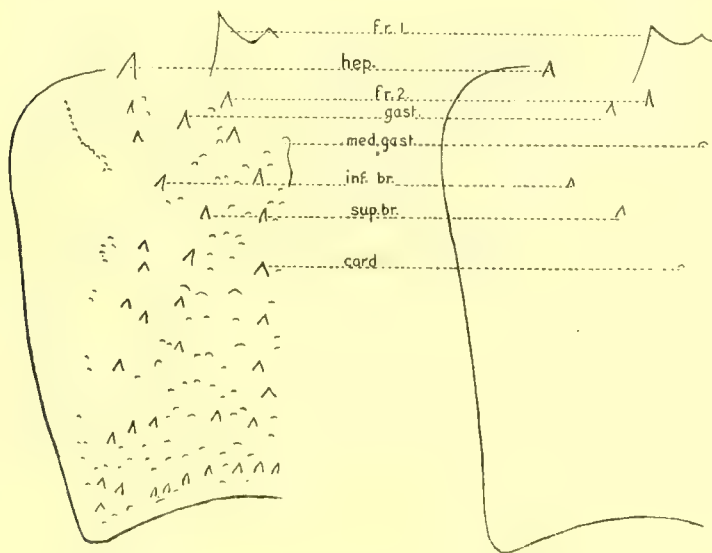 fr. 1.
hep.
fr. 2.
gast.
med. gast.
inf. br.
sup. br.
card